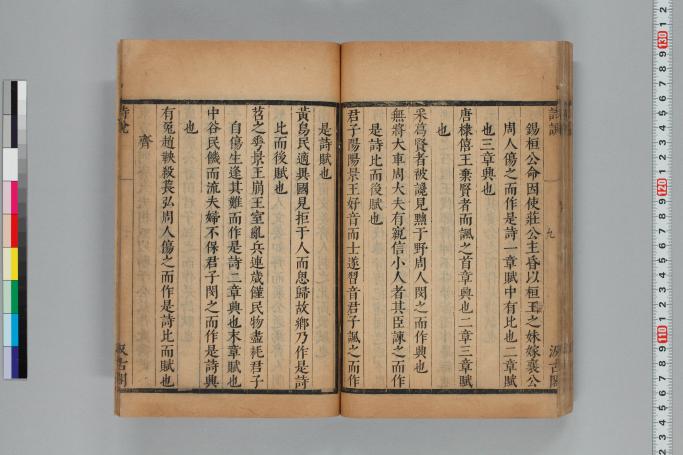 錫桓公命因使莊公主昏以桓王之妹嫁襄公
周人傷之而作是詩一章賦中有比也二章賦
也三章興也
唐棣僖王棄賢者而諷之首章興也二章三章賦
也
采葛賢者被讒見黜于野周人閔之而作興也
無將大車周大夫有寵信小人者其臣諫之而作
是詩比而後賦也
君子陽陽景王好音而士遂習音君子諷之而作
是詩賦也
黃鳥民適異國見拒于人而思歸故鄉乃作是詩
比而後賦也
苕之華景王崩王室亂兵連歲饉民物盡耗君子
自傷生逢其難而作是詩二章興也末章賦也
中谷民饑而流夫婦不保君子閔之而作是詩興
也
有兔趙鞅殺萇弘周人傷之而作是詩比而賦也
齊
詩說
九
汲古閣
詩說
汲古閣